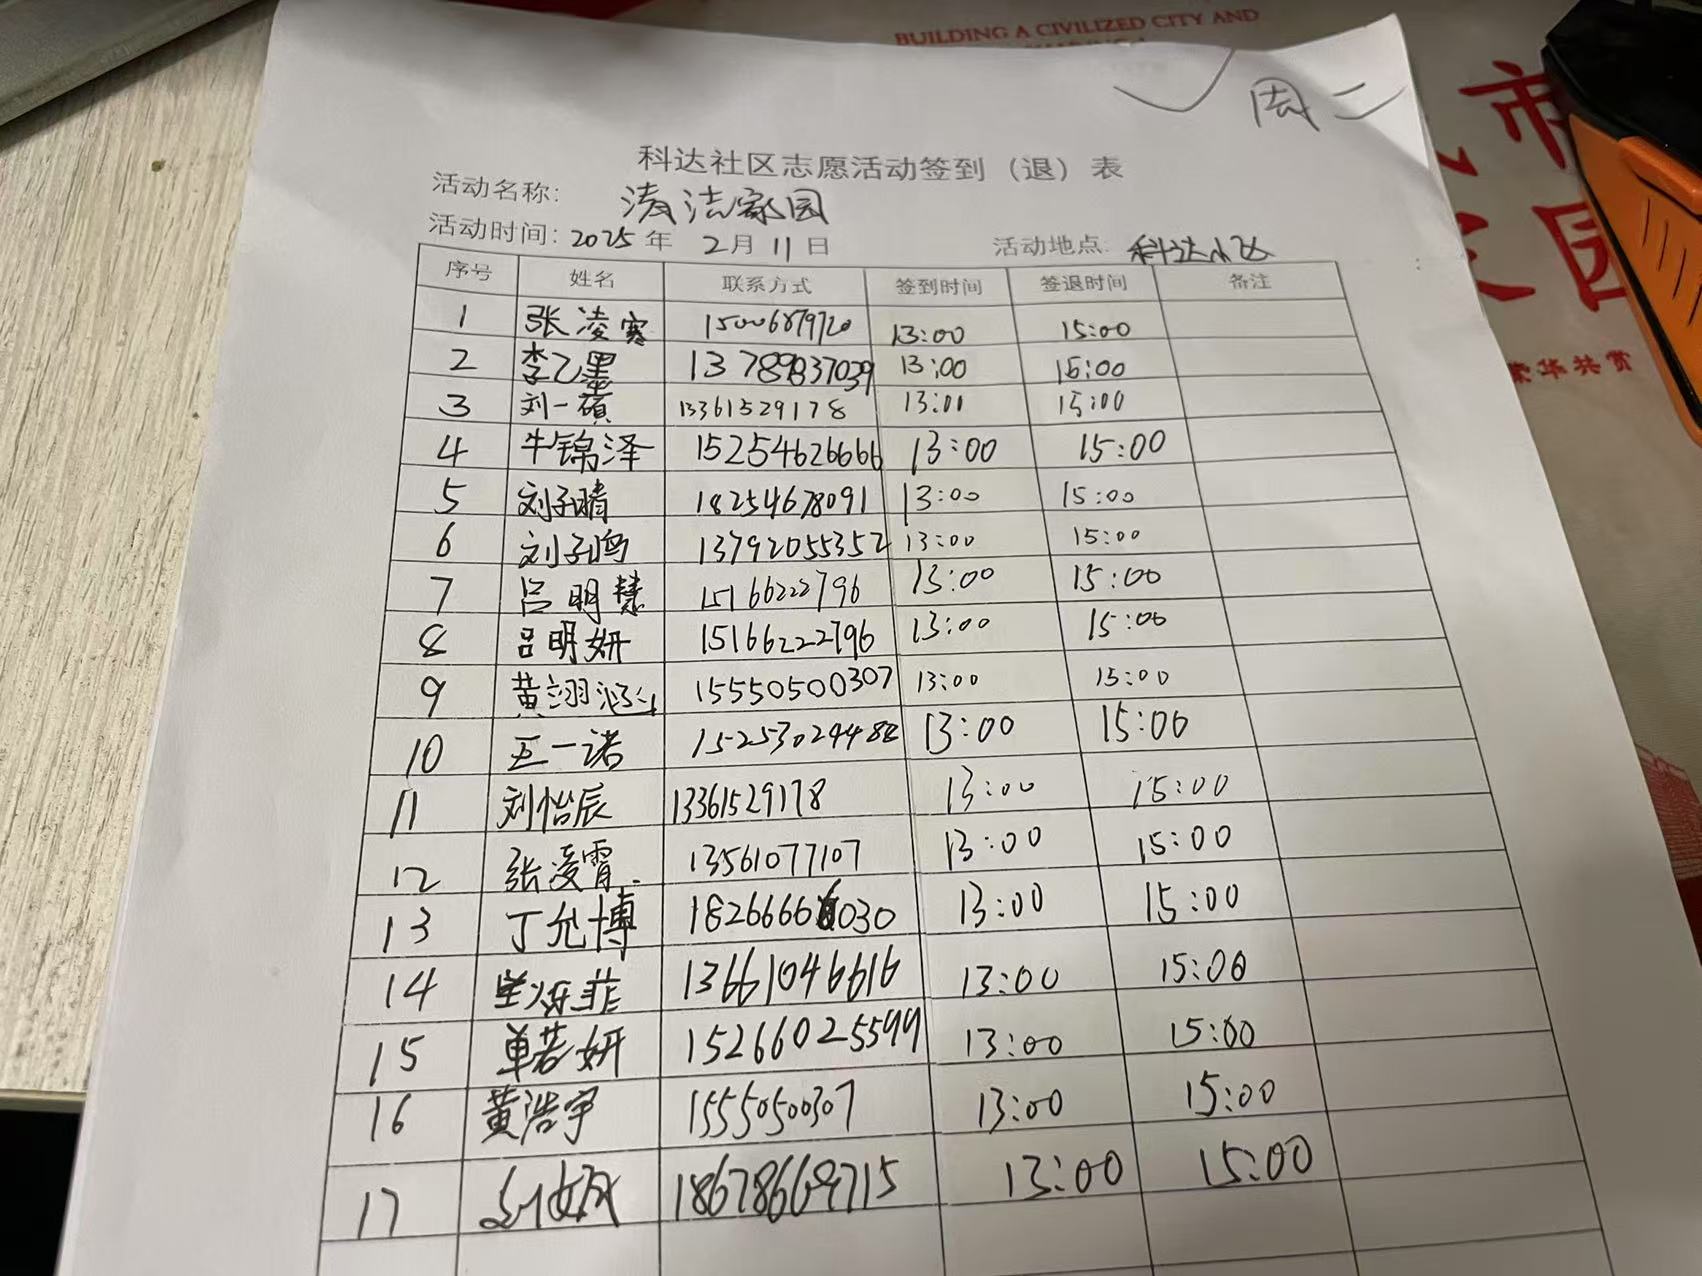 BUILDING A CIVILIZED CITY AND
周二
科达社区志愿活动签到（退）表
活动名称： 清洁家园
活动时间：2025年 2月11日 活动地点：科达小区
序号 姓名 联系方式 签到时间 签退时间 备注
1 张凌寒 15006879720 13:00 15:00
2 李乙墨 13789837039 13:00 15:00
3 刘一硕 13361529178 13:01 15:00
4 牛锦泽 15254626666 13:00 15:00
5 刘子晴 18254678091 13:00 15:00
6 刘子鸣 13792055352 13:00 15:00
7 吕明慧 15166222796 13:00 15:00
8 吕明妍 15166222796 13:00 15:00
9 黄翊涵 15550500307 13:00 15:00
10 王一诺 15253029488 13:00 15:00
11 刘怡辰 13361529178 13:00 15:00
12 张凌霄 13561077107 13:00 15:00
13 丁允博 18266666030 13:00 15:00
14 13661046616 13:00 15:00
15 单若妍 15266025599 13:00 15:00
16 黄浩宇 15550500307 13:00 15:00
17 18678669715 13:00 15:00
市
园
荣华共赏